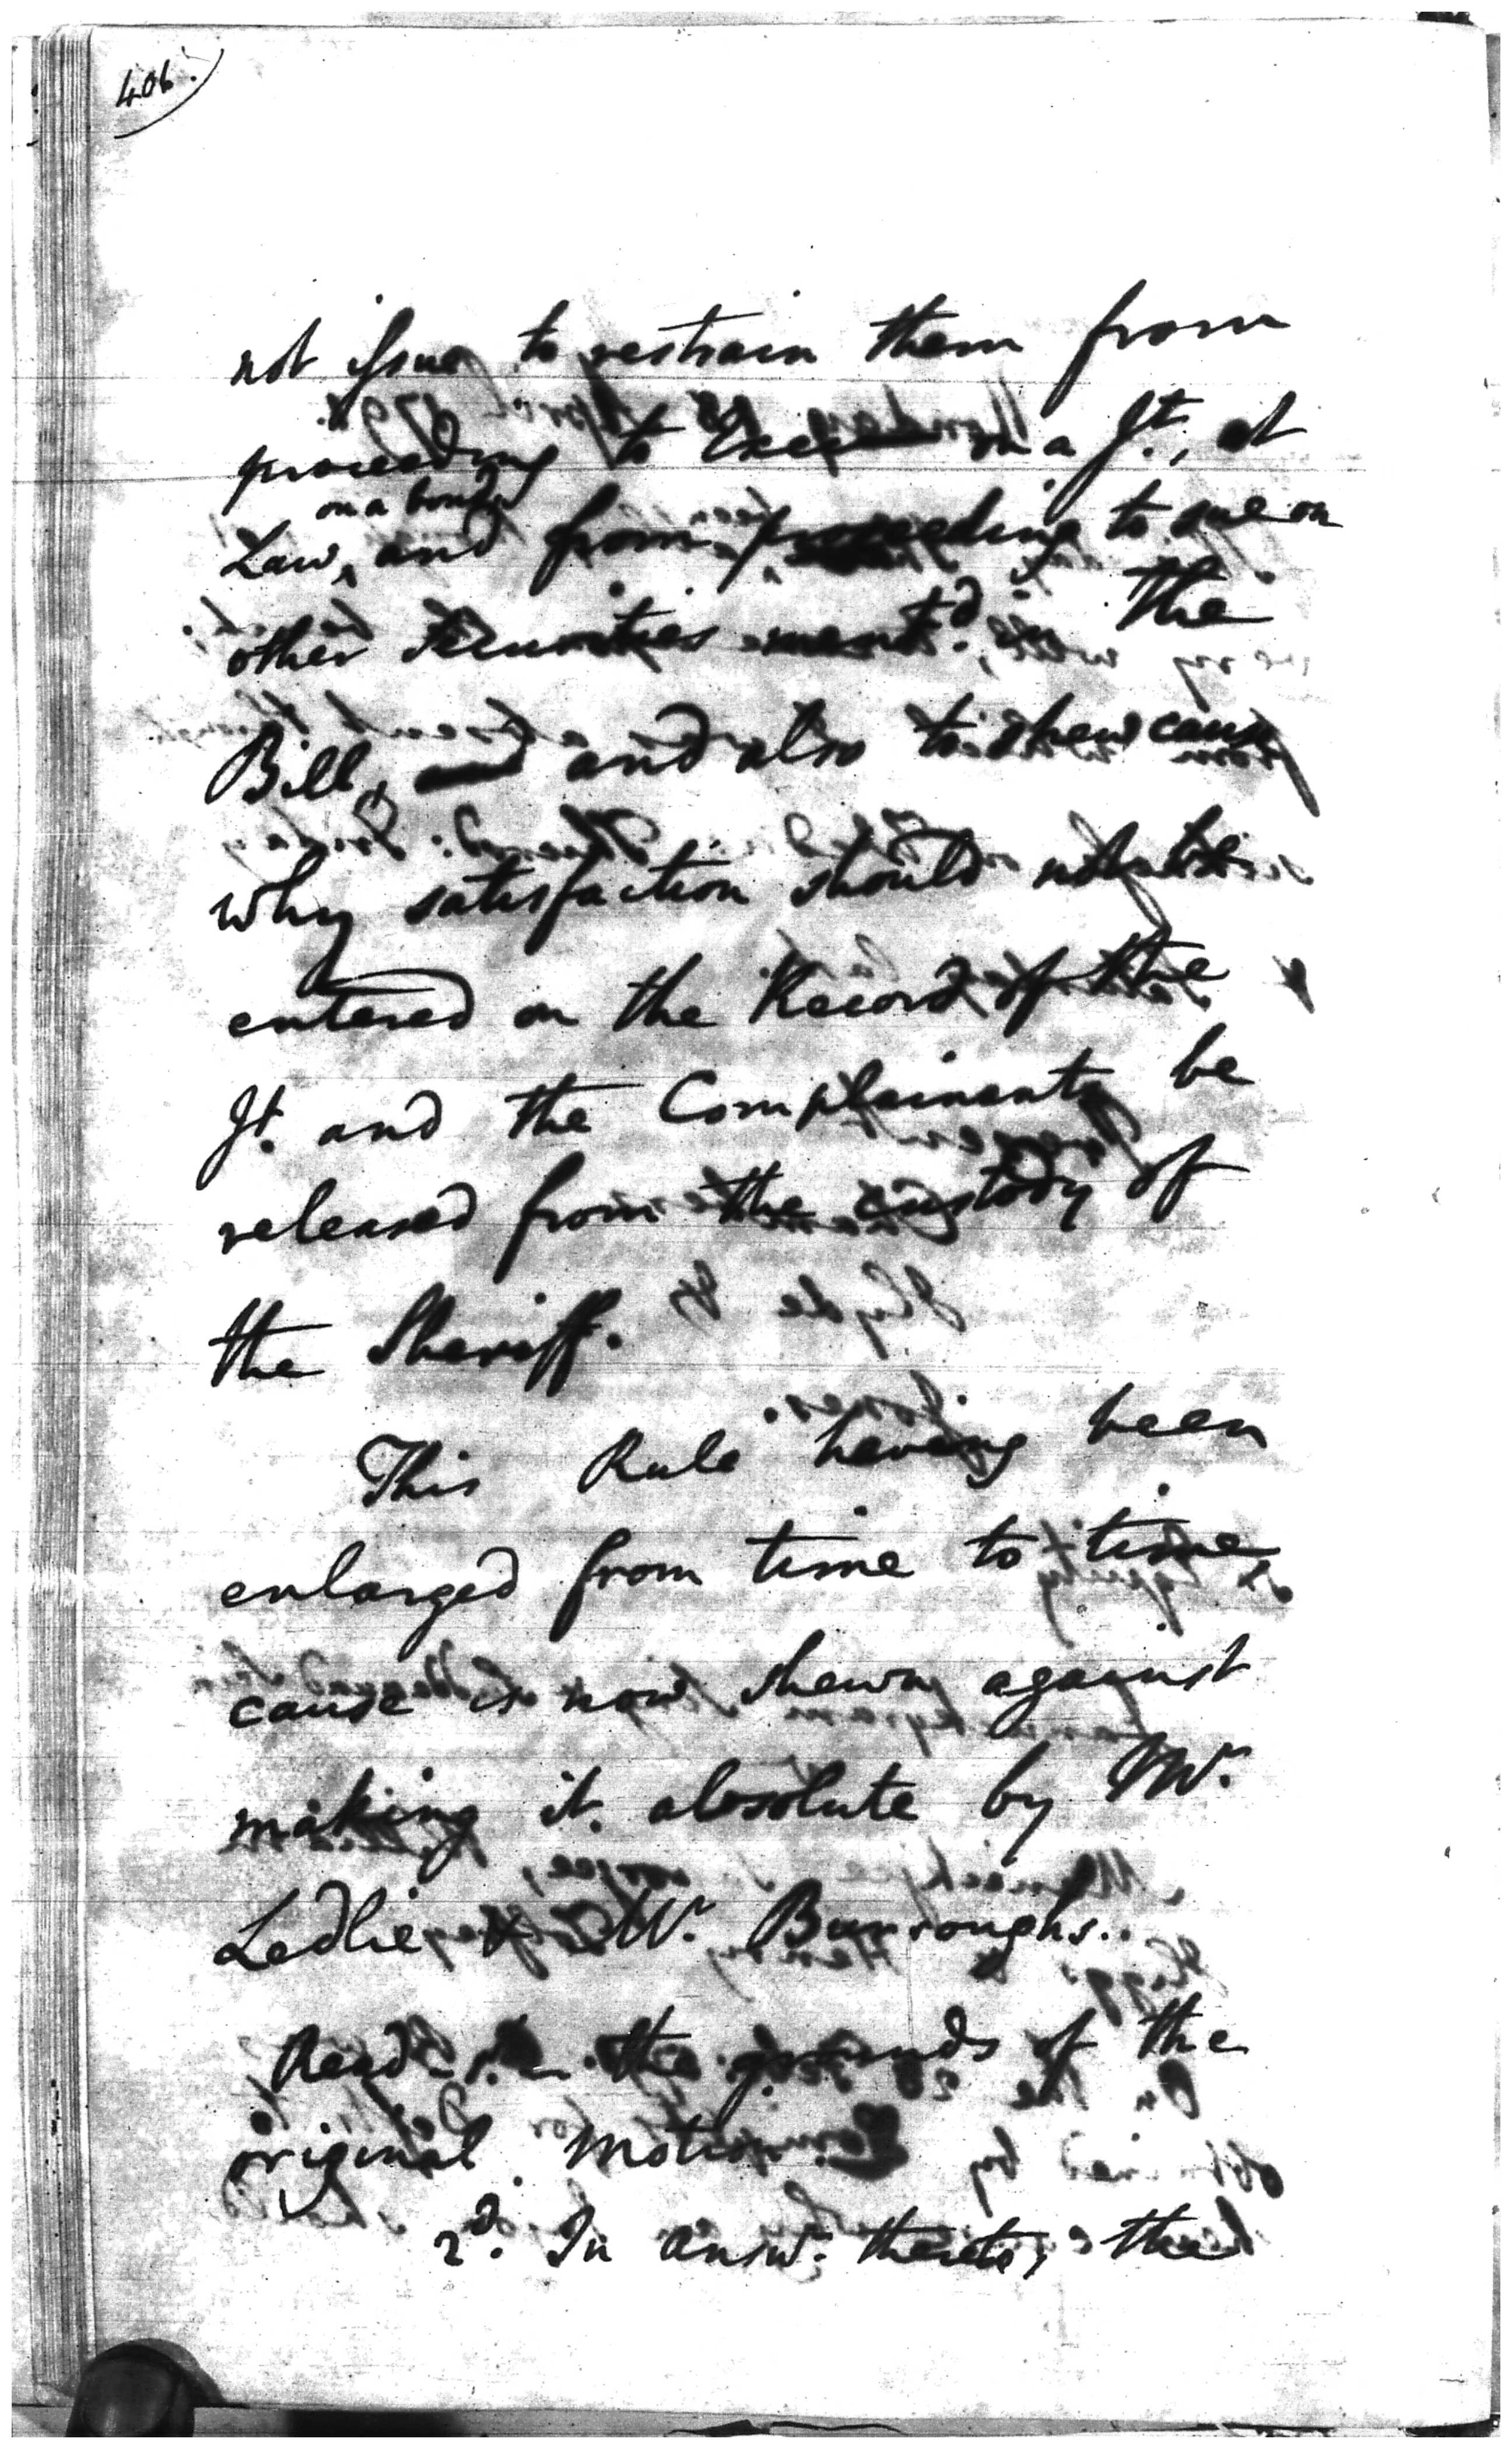 406.
not issue to restrain them from
proceeding to Exec on a Jt., at
on a bond
Law, and from proceeding to sue on
other securities ment.d in the
Bill, and also to shew cause
why satisfaction should not be
entered on the Record of the
Jt. and the Complainants be
released from the custody of
the Sheriff.
This Rule having been
enlarged from time to time
cause is now shewn against
making it absolute by Mr.
Ledlie & Mr. Burroughs.
Read the grounds of the
original motion.
2d. In answr. thereto, the